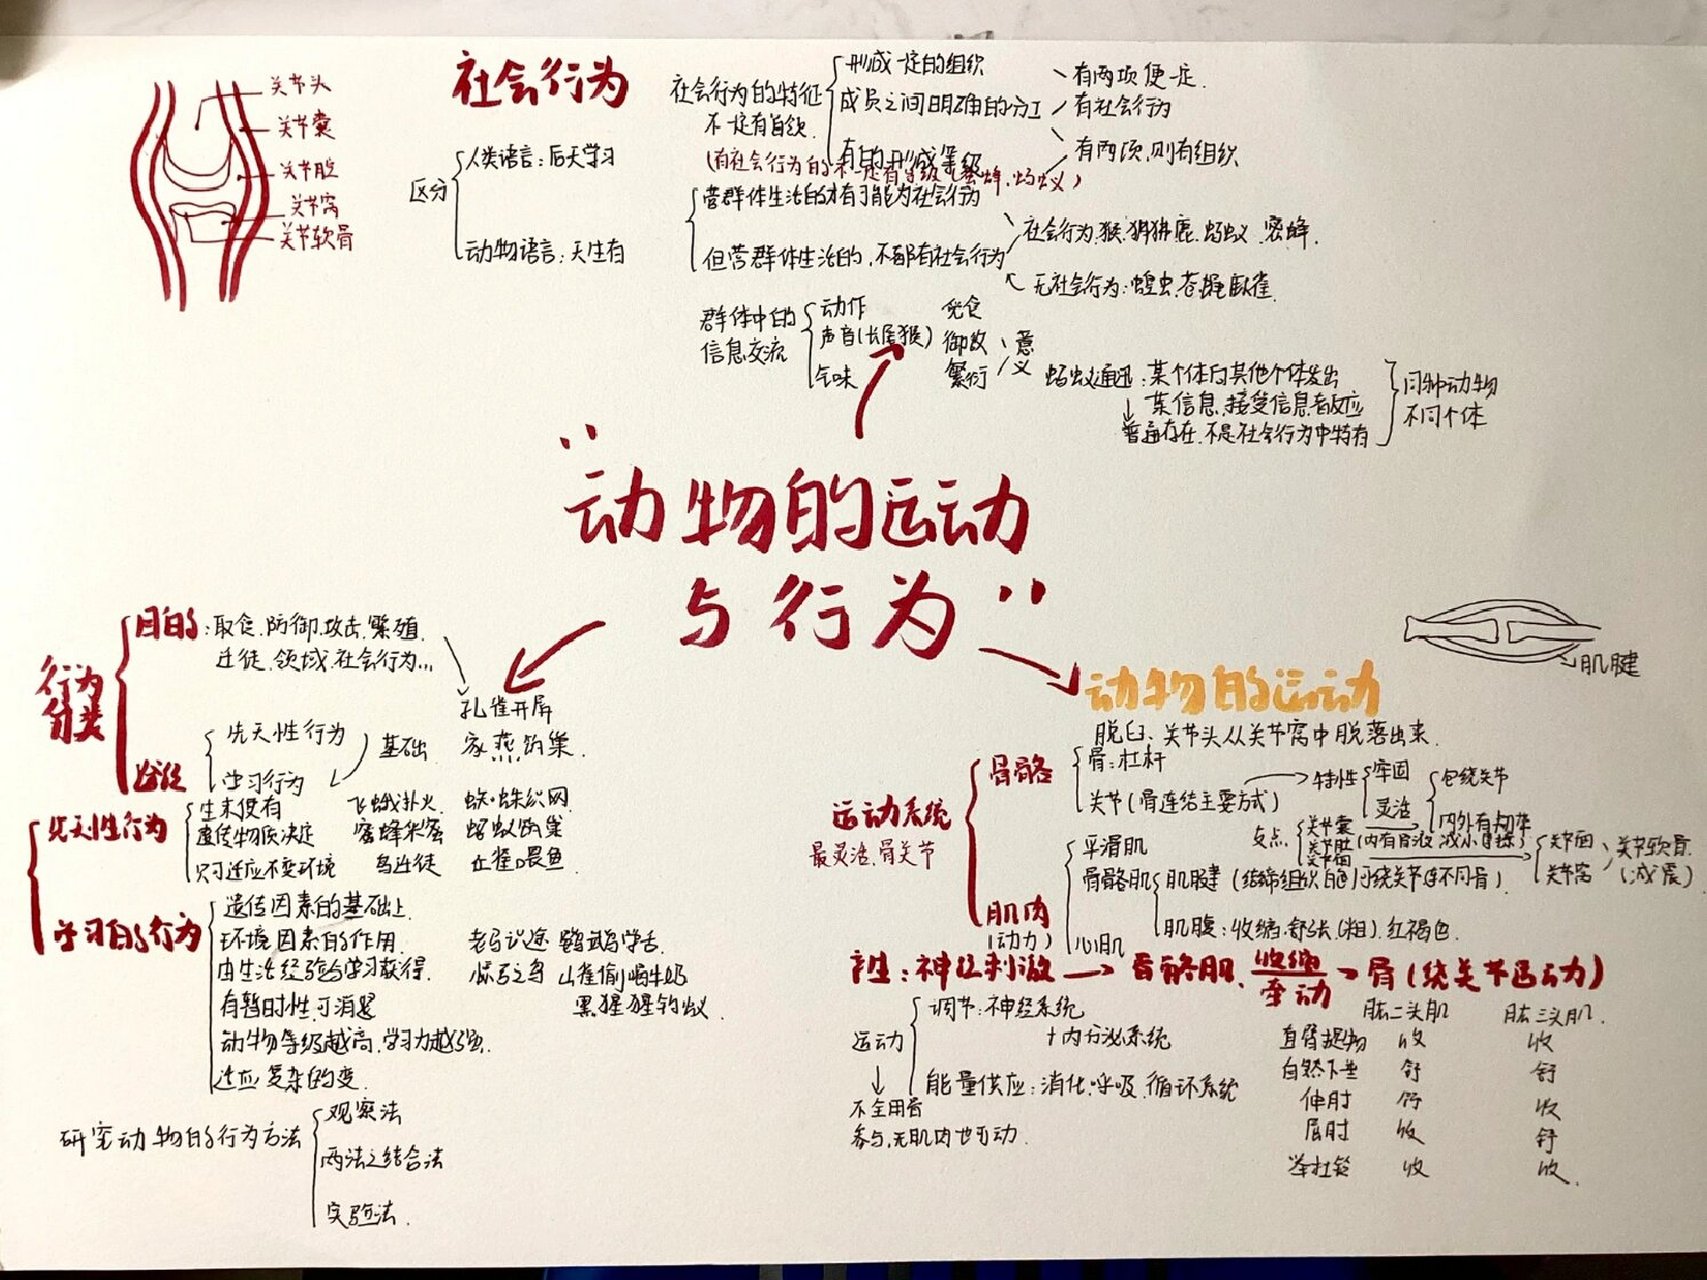 关节头
关节囊
关节腔
关节窝
关节软骨
社会行为
区分
人类语言：后天学习
动物语言：天生有
社会行为的特征
不一定有首领.
形成一定的组织
成员之间明确的分工
有的形成等级
有两项便一定
有社会行为
有两项,则有组织
(有社会行为的不一定有等级(蜜蜂.蚂蚁)
营群体生活的才有可能为社会行为
但营群体生活的,不都有社会行为
社会行为.猴.狒狒.鹿.蚂蚁.蜜蜂.
无社会行为：蝗虫.苍蝇.麻雀.
群体中的
信息交流
动作
声音(长尾猴)
气味
觅食
御敌
繁衍
意义
蚂蚁通迅：某个体向其他个体发出
某信息,接受信息者反应
普遍存在.不是社会行为中特有
同种动物
不同个体
“动物的运动
与行为”
行为
分类
目的：取食.防御.攻击.繁殖.
迁徒.领域.社会行为...
孔雀开屏
家燕筑巢.
途径
先天性行为
学习行为
基础
先天性行为
生来便有
遗传物质决定
只可适应不变环境
飞蛾扑火.
蜜蜂采蜜
鸟迁徒
蜘蛛织网.
蚂蚁筑巢
丘雀喂鱼
学习的行为
遗传因素的基础上.
环境因素的作用.
由生活经验与学习获得.
有暂时性.可消退
动物等级越高,学习力越强.
适应复杂的变.
老马识途 鹦鹉学舌.
惊弓之鸟 山雀偷喝牛奶
黑猩猩钓蚁.
研究动物的行为方法
观察法
两法之结合法
实验法.
肌腱
动物的运动
脱臼、关节头从关节窝中脱落出来.
运动系统
最灵活.骨关节
骨骼
骨：杠杆
关节(骨连结主要方式)
特性
牢固
灵活
包绕关节
内外有韧带
支点.
关节囊
关节腔(内有滑液 减小摩擦)
关节面
关节面
关节窝
关节软骨.
(减震)
肌肉
(动力)
平滑肌
骨骼肌
心肌
肌腱(结缔组织 白色)可绕关节连不同骨).
肌腹：收缩.舒张.(粗).红褐色.
产生：神经刺激→骨骼肌.收缩/牵动→骨(绕关节运动力)
运动
↓
不全用骨
参与,无肌肉也可动.
调节：神经系统
+内分泌系统
能量供应：消化.呼吸.循环系统
肱二头肌 肱三头肌.
直臂提物 收 收
自然下垂 舒 舒
伸肘 舒 收
屈肘 收 舒
举杠铃 收 收.